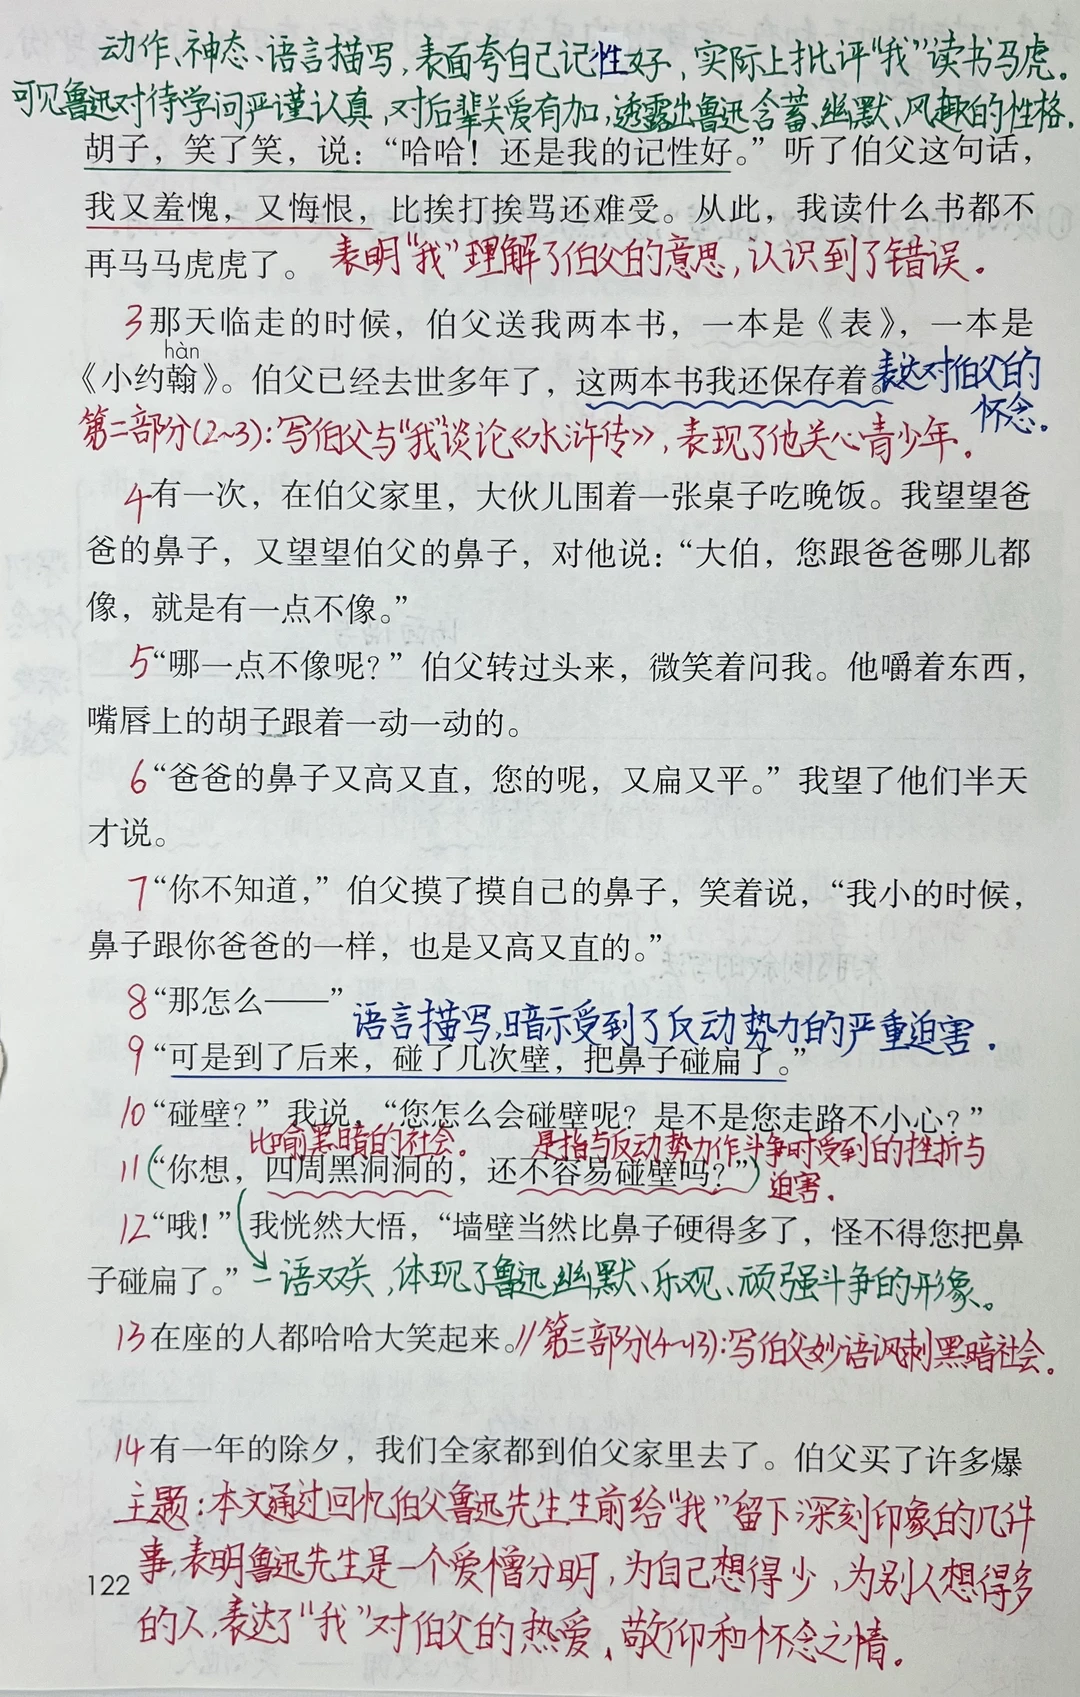 动作、神态、语言描写,表面夸自己记性好,实际上批评“我”读书马虎。
可见鲁迅对待学问严谨认真,对后辈关爱有加,透露出鲁迅含蓄、幽默、风趣的性格.
胡子，笑了笑，说：“哈哈！还是我的记性好。”听了伯父这句话，
我又羞愧，又悔恨，比挨打挨骂还难受。从此，我读什么书都不
再马马虎虎了。 表明“我”理解了伯父的意思,认识到了错误.
3那天临走的时候，伯父送我两本书，一本是《表》，一本是
hàn
《小约翰》。伯父已经去世多年了，这两本书我还保存着。表达对伯父的
怀念.
第二部分(2~3):写伯父与“我”谈论《水浒传》,表现了他关心青少年.
4有一次，在伯父家里，大伙儿围着一张桌子吃晚饭。我望望爸
爸的鼻子，又望望伯父的鼻子，对他说：“大伯，您跟爸爸哪儿都
像，就是有一点不像。”
5“哪一点不像呢？”伯父转过头来，微笑着问我。他嚼着东西，
嘴唇上的胡子跟着一动一动的。
6“爸爸的鼻子又高又直，您的呢，又扁又平。”我望了他们半天
才说。
7“你不知道，”伯父摸了摸自己的鼻子，笑着说，“我小的时候，
鼻子跟你爸爸的一样，也是又高又直的。”
8“那怎么——”
语言描写,暗示受到了反动势力的严重迫害.
9“可是到了后来，碰了几次壁，把鼻子碰扁了。”
10“碰壁？”我说，“您怎么会碰壁呢？是不是您走路不小心？”
比喻黑暗的社会。 是指与反动势力作斗争时受到的挫折与
迫害.
11(“你想，四周黑洞洞的，还不容易碰壁吗？”)
12“哦！”我恍然大悟，“墙壁当然比鼻子硬得多了，怪不得您把鼻
子碰扁了。”一语双关,体现了鲁迅幽默、乐观、顽强斗争的形象。
13在座的人都哈哈大笑起来。//第三部分(4~13):写伯父妙语讽刺黑暗社会.
14有一年的除夕，我们全家都到伯父家里去了。伯父买了许多爆
主题:本文通过回忆伯父鲁迅先生生前给“我”留下深刻印象的几件
事,表明鲁迅先生是一个爱憎分明,为自己想得少,为别人想得多
122
的人,表达了“我”对伯父的热爱、敬仰和怀念之情.